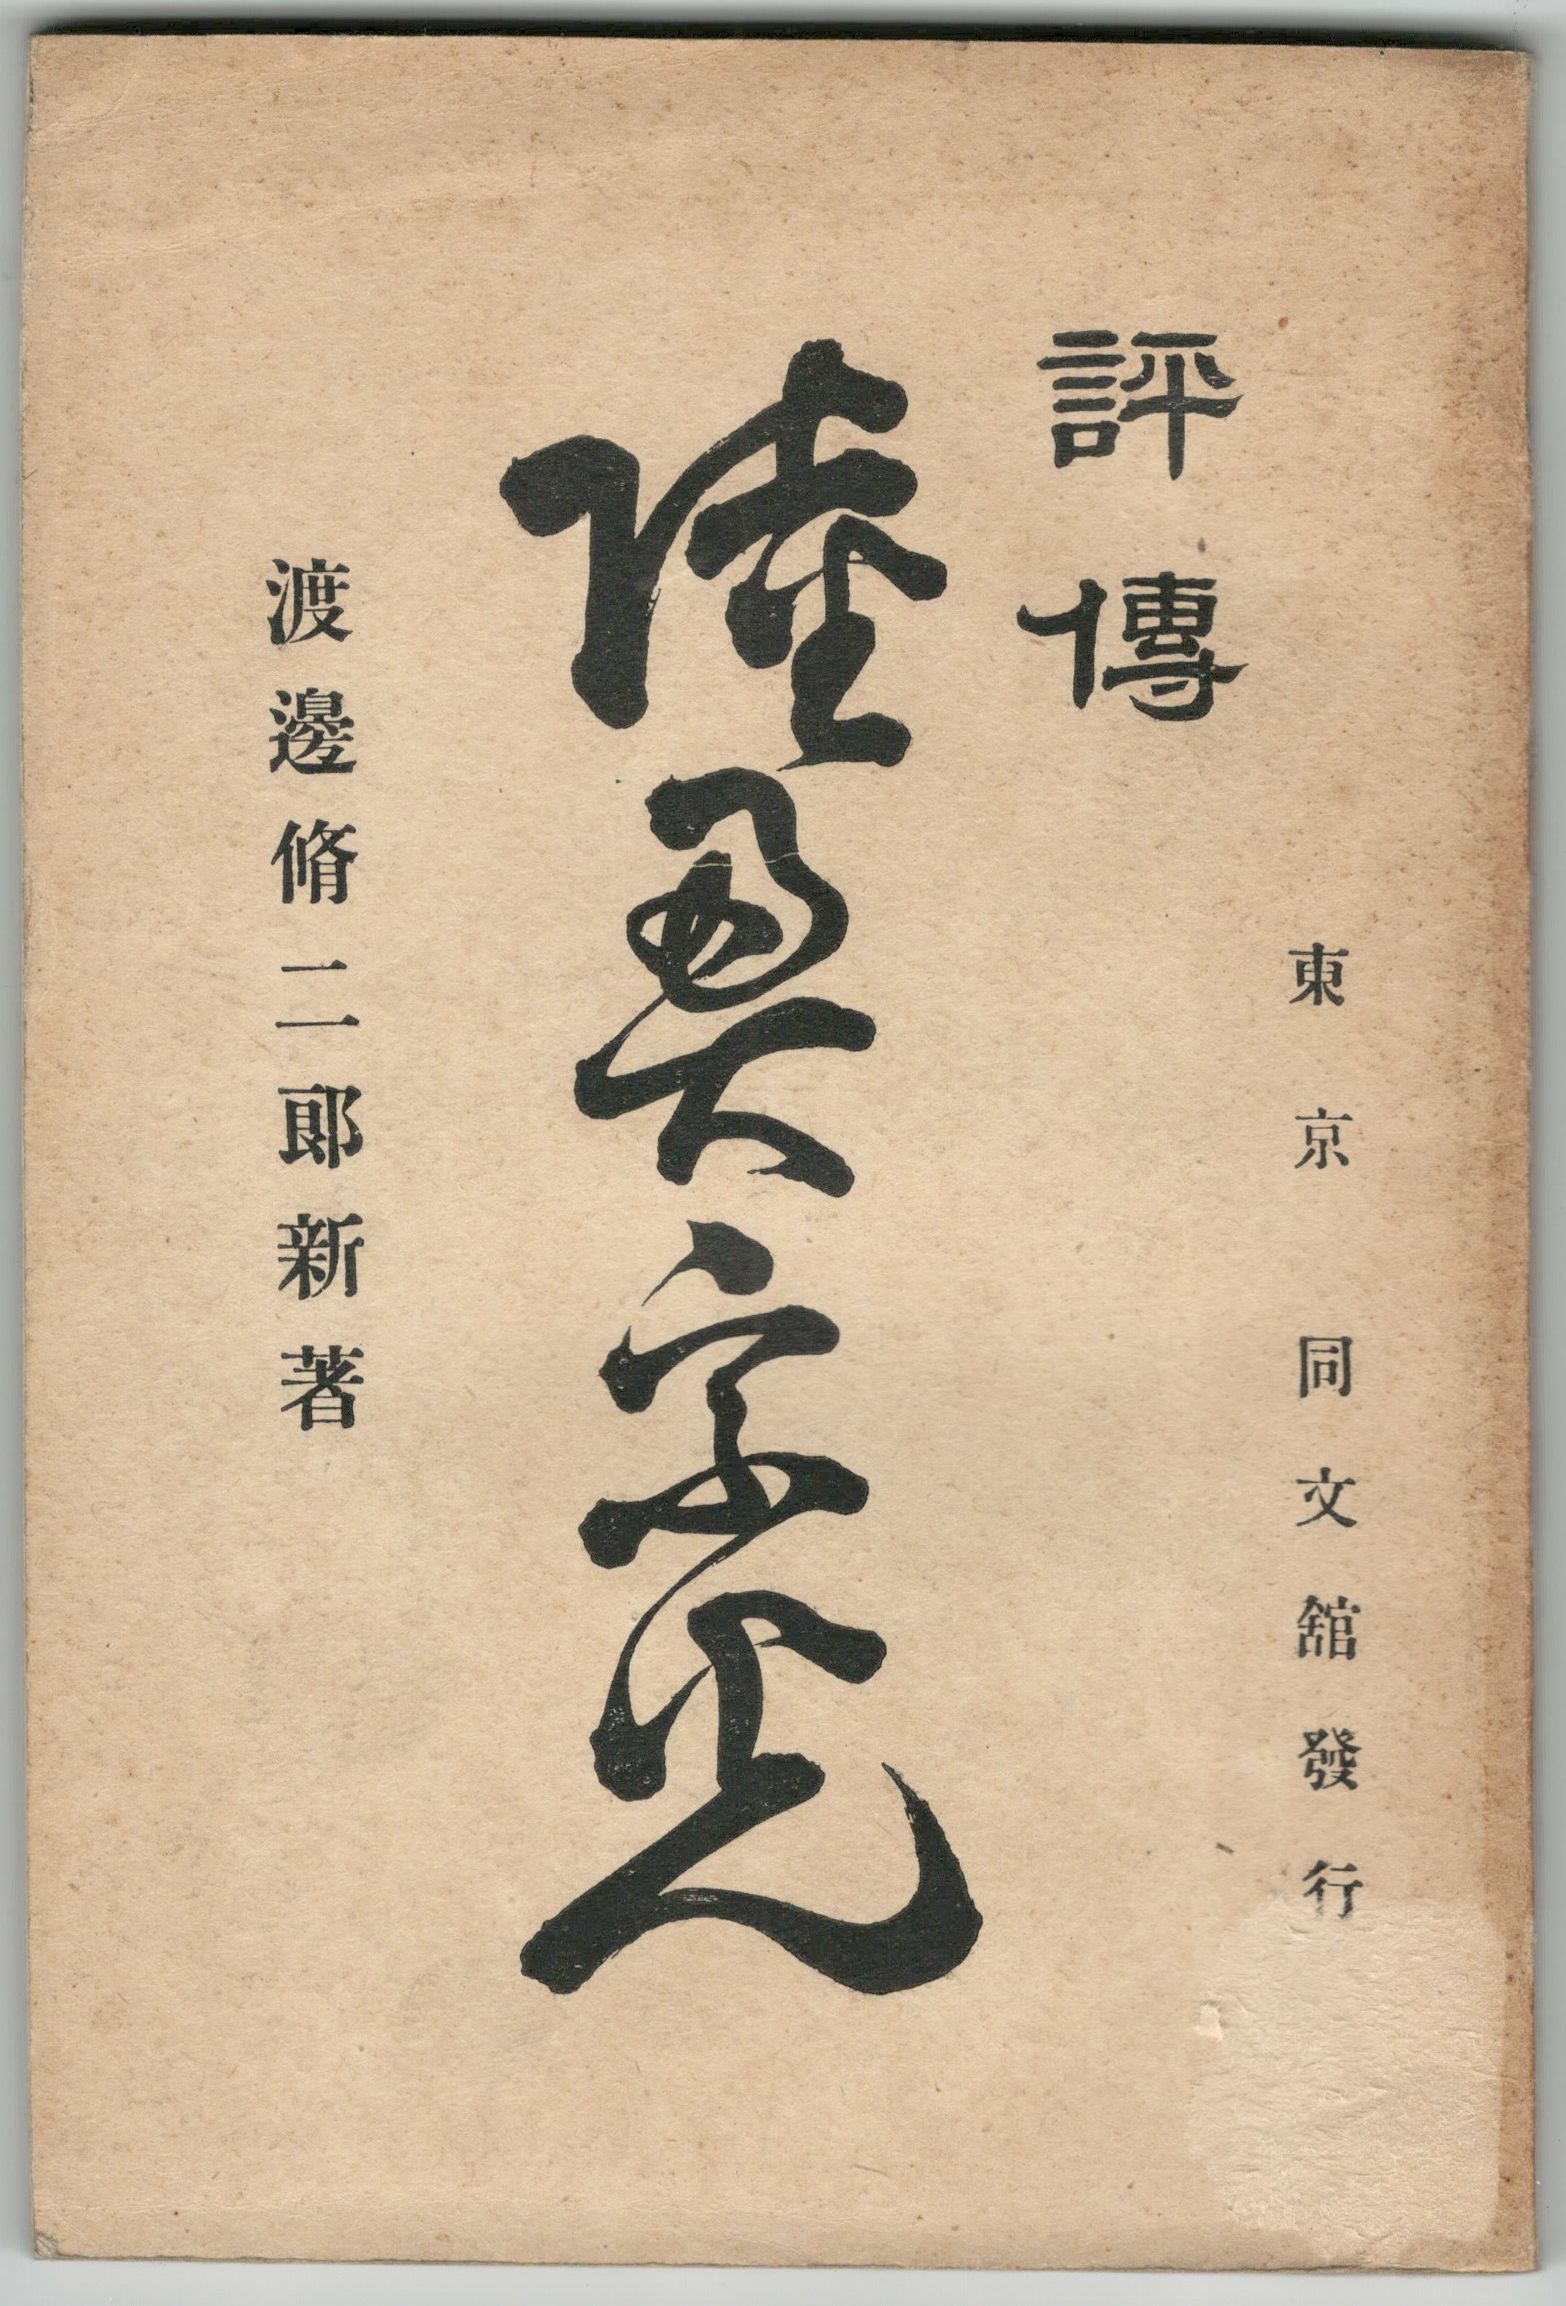 東京 同文舘發行
評傳
陸奥宗光
渡邊脩二郎新著